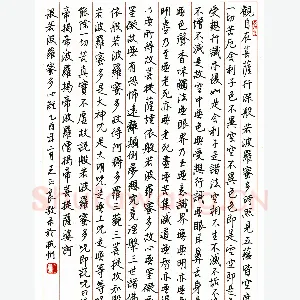 觀自在菩薩行深般若波羅蜜多時照見五蘊皆空度
一切苦厄舍利子色不異空空不異色色即是空空即是色
受想行識亦復如是舍利子是諸法空相不生不滅不垢不淨
不增不減是故空中無色無受想行識無眼耳鼻舌身意
無色聲香味觸法無眼界乃至無意識界無無明亦無
無明盡乃至無老死亦無老死盡無苦集滅道無智亦無得
以無所得故菩提薩埵依般若波羅蜜多故心無罣礙無
罣礙故無有恐怖遠離顛倒夢想究竟涅槃三世諸佛
依般若波羅蜜多故得阿耨多羅三藐三菩提故知般
若波羅蜜多是大神咒是大明咒是無上咒是無等等咒
能除一切苦真實不虛故說般若波羅蜜多咒即說咒曰揭
帝揭帝般羅揭帝般羅僧揭帝菩提薩婆訶
般若波羅蜜多心經 乙酉年二月